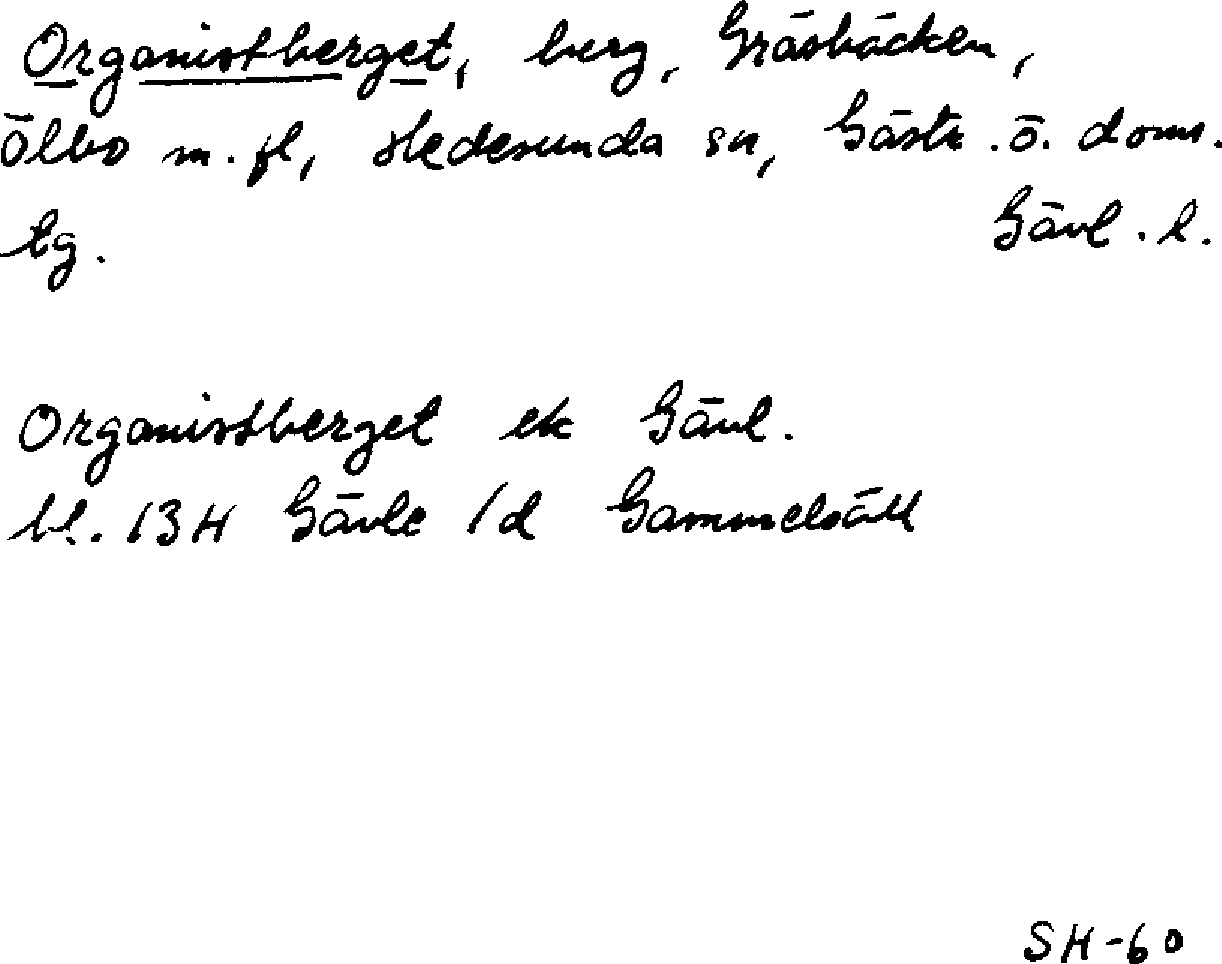 Organistberget, berg, Gräsbäcken,
Ölbo m. fl, Hedesunda sn, Gästr. ö. doms.
tg. Gävl. l.
Organistberget ek Gävl.
bl. 13H Gävle 1d Gammelsäll
SH-60